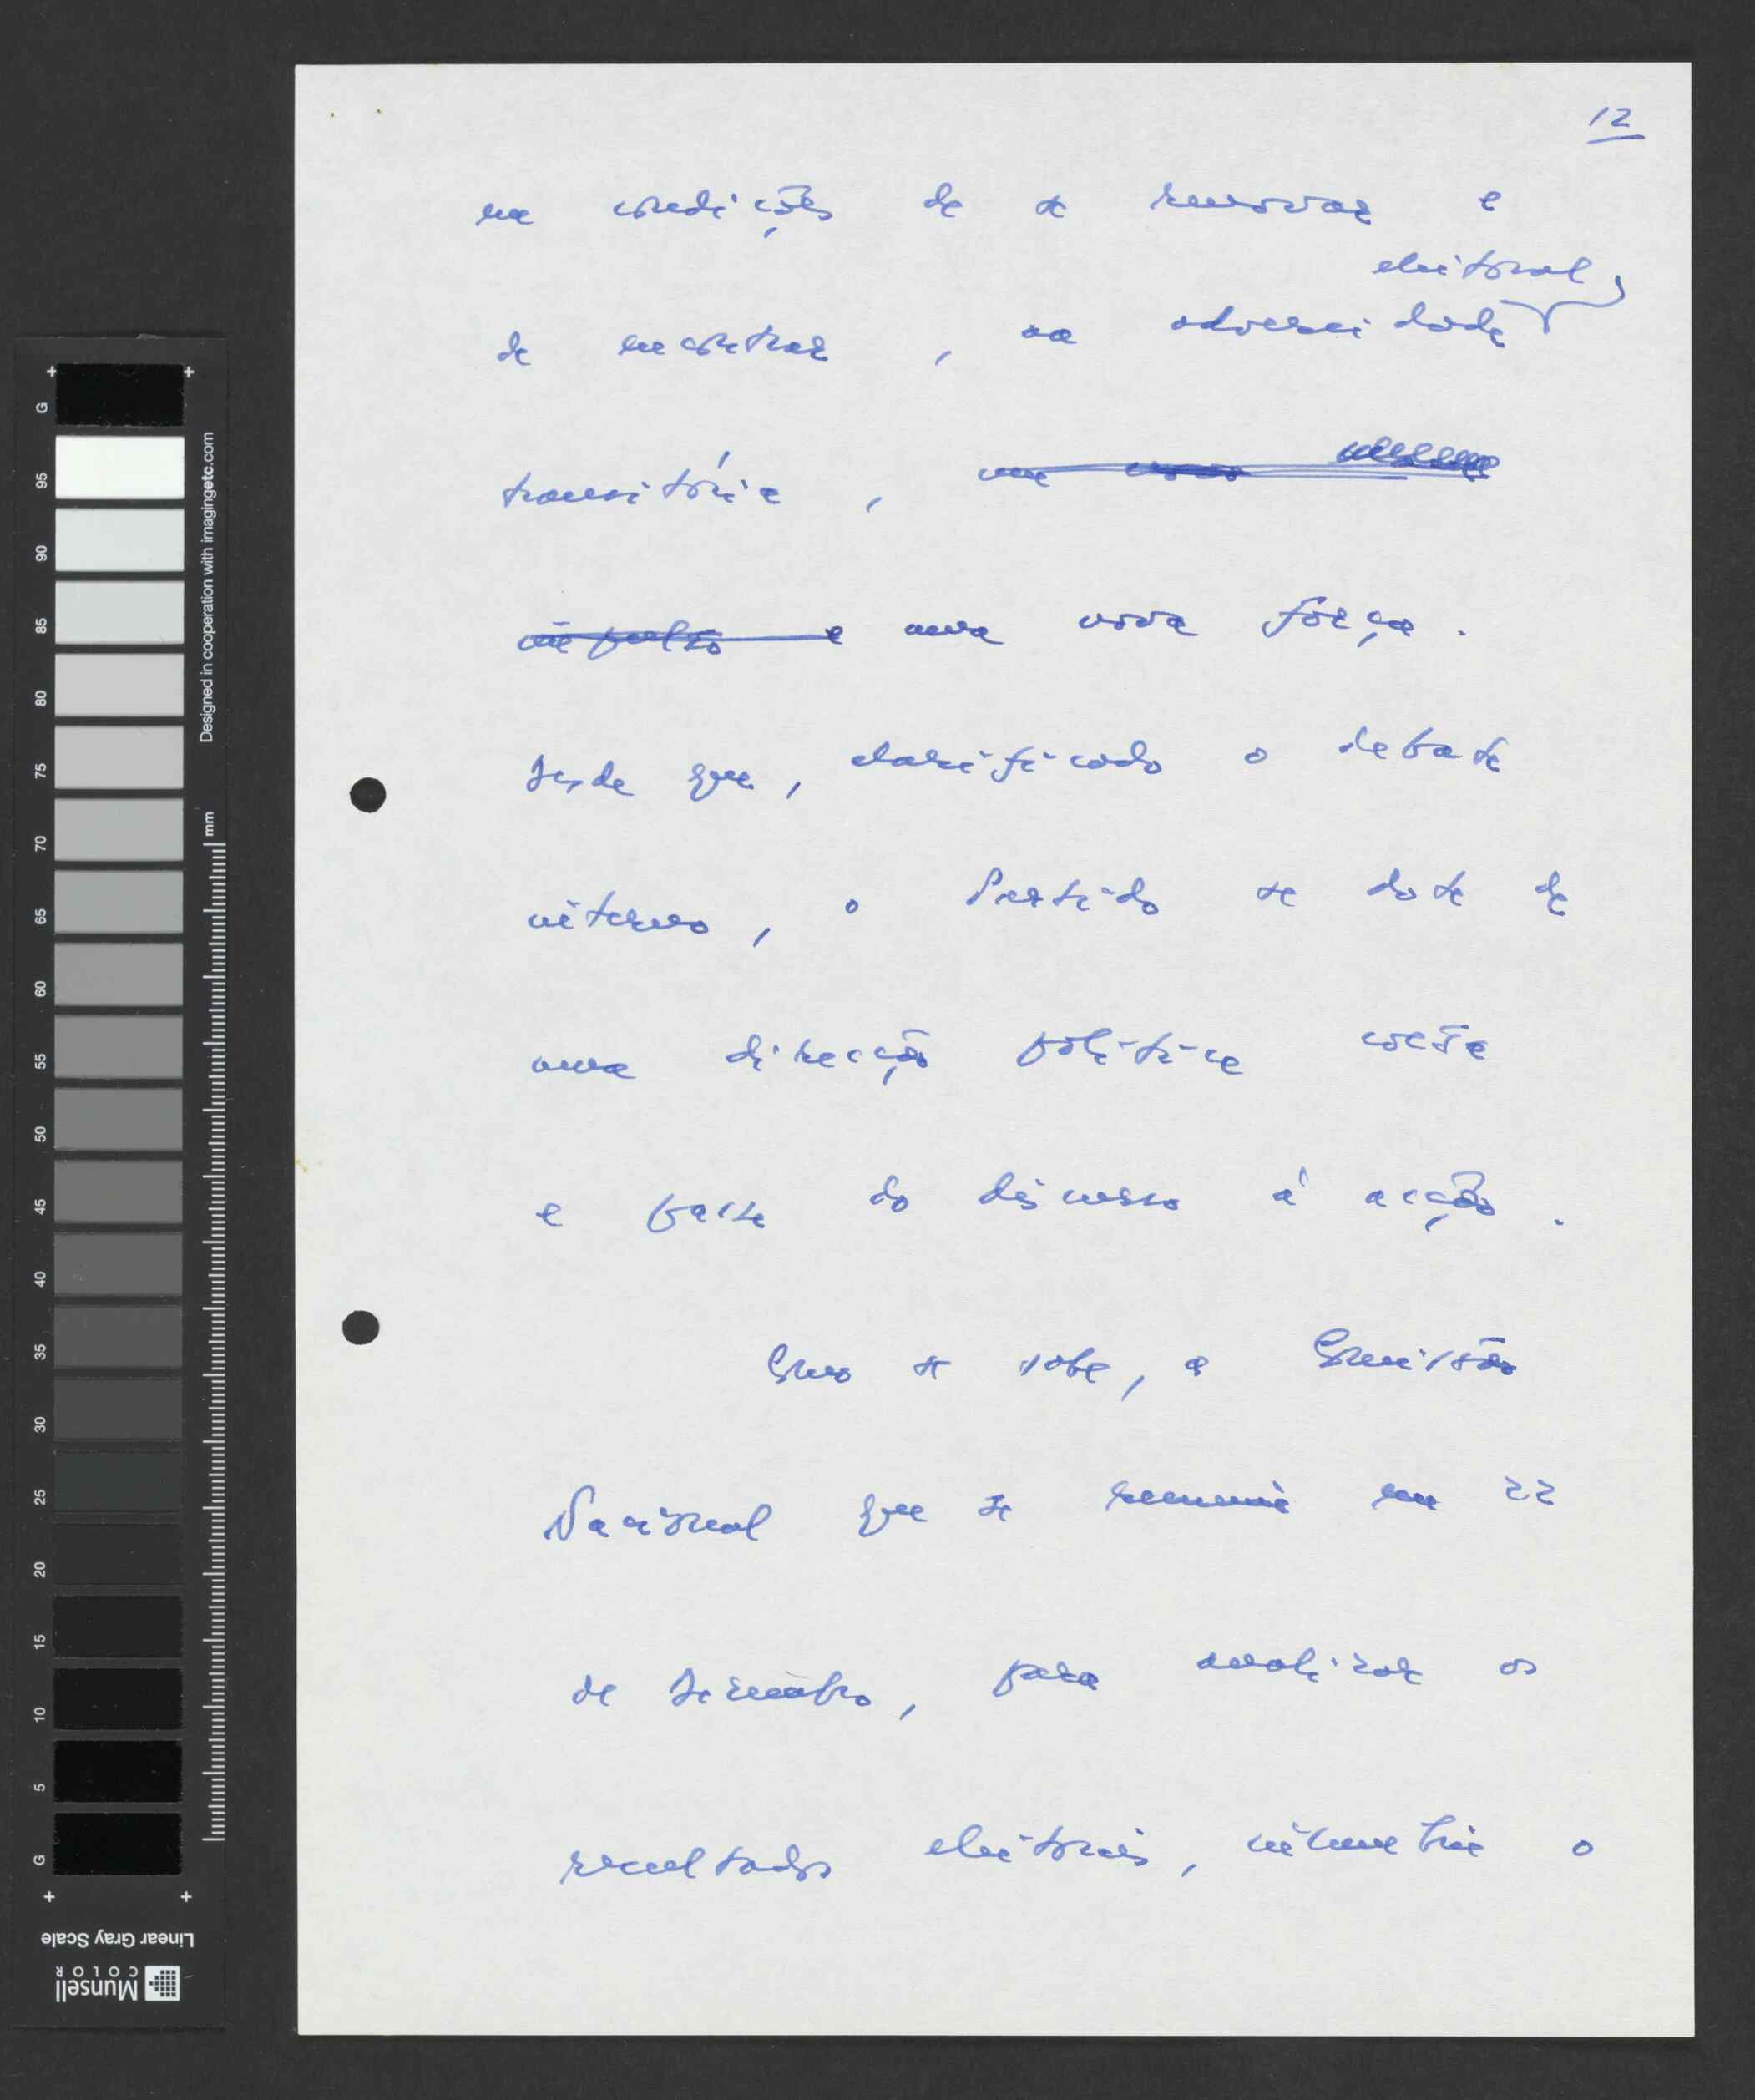 12
em condições de se renovar e
eleitoral,
de encontrar, na adversidade
transitória, um novo
impulso e uma nova força.
Desde que, clarificado o debate
interno, o Partido se dote de
uma direcção política coesa
e passe do discurso à acção.
Como se sabe, a Comissão
Nacional que se reuniu em 22
de Dezembro, para analizar os
resultados eleitorais, incumbiu o
G 95 90 85 80 75 70 65 60 55 50 45 40 35 30 25 20 15 10 5 G
Designed in cooperation with imagingetc.com
mm
Linear Gray Scale
Munsell
COLOR